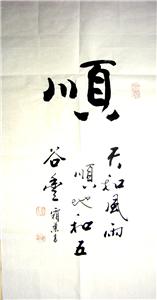 順
天和風雨
順地和五
谷豐